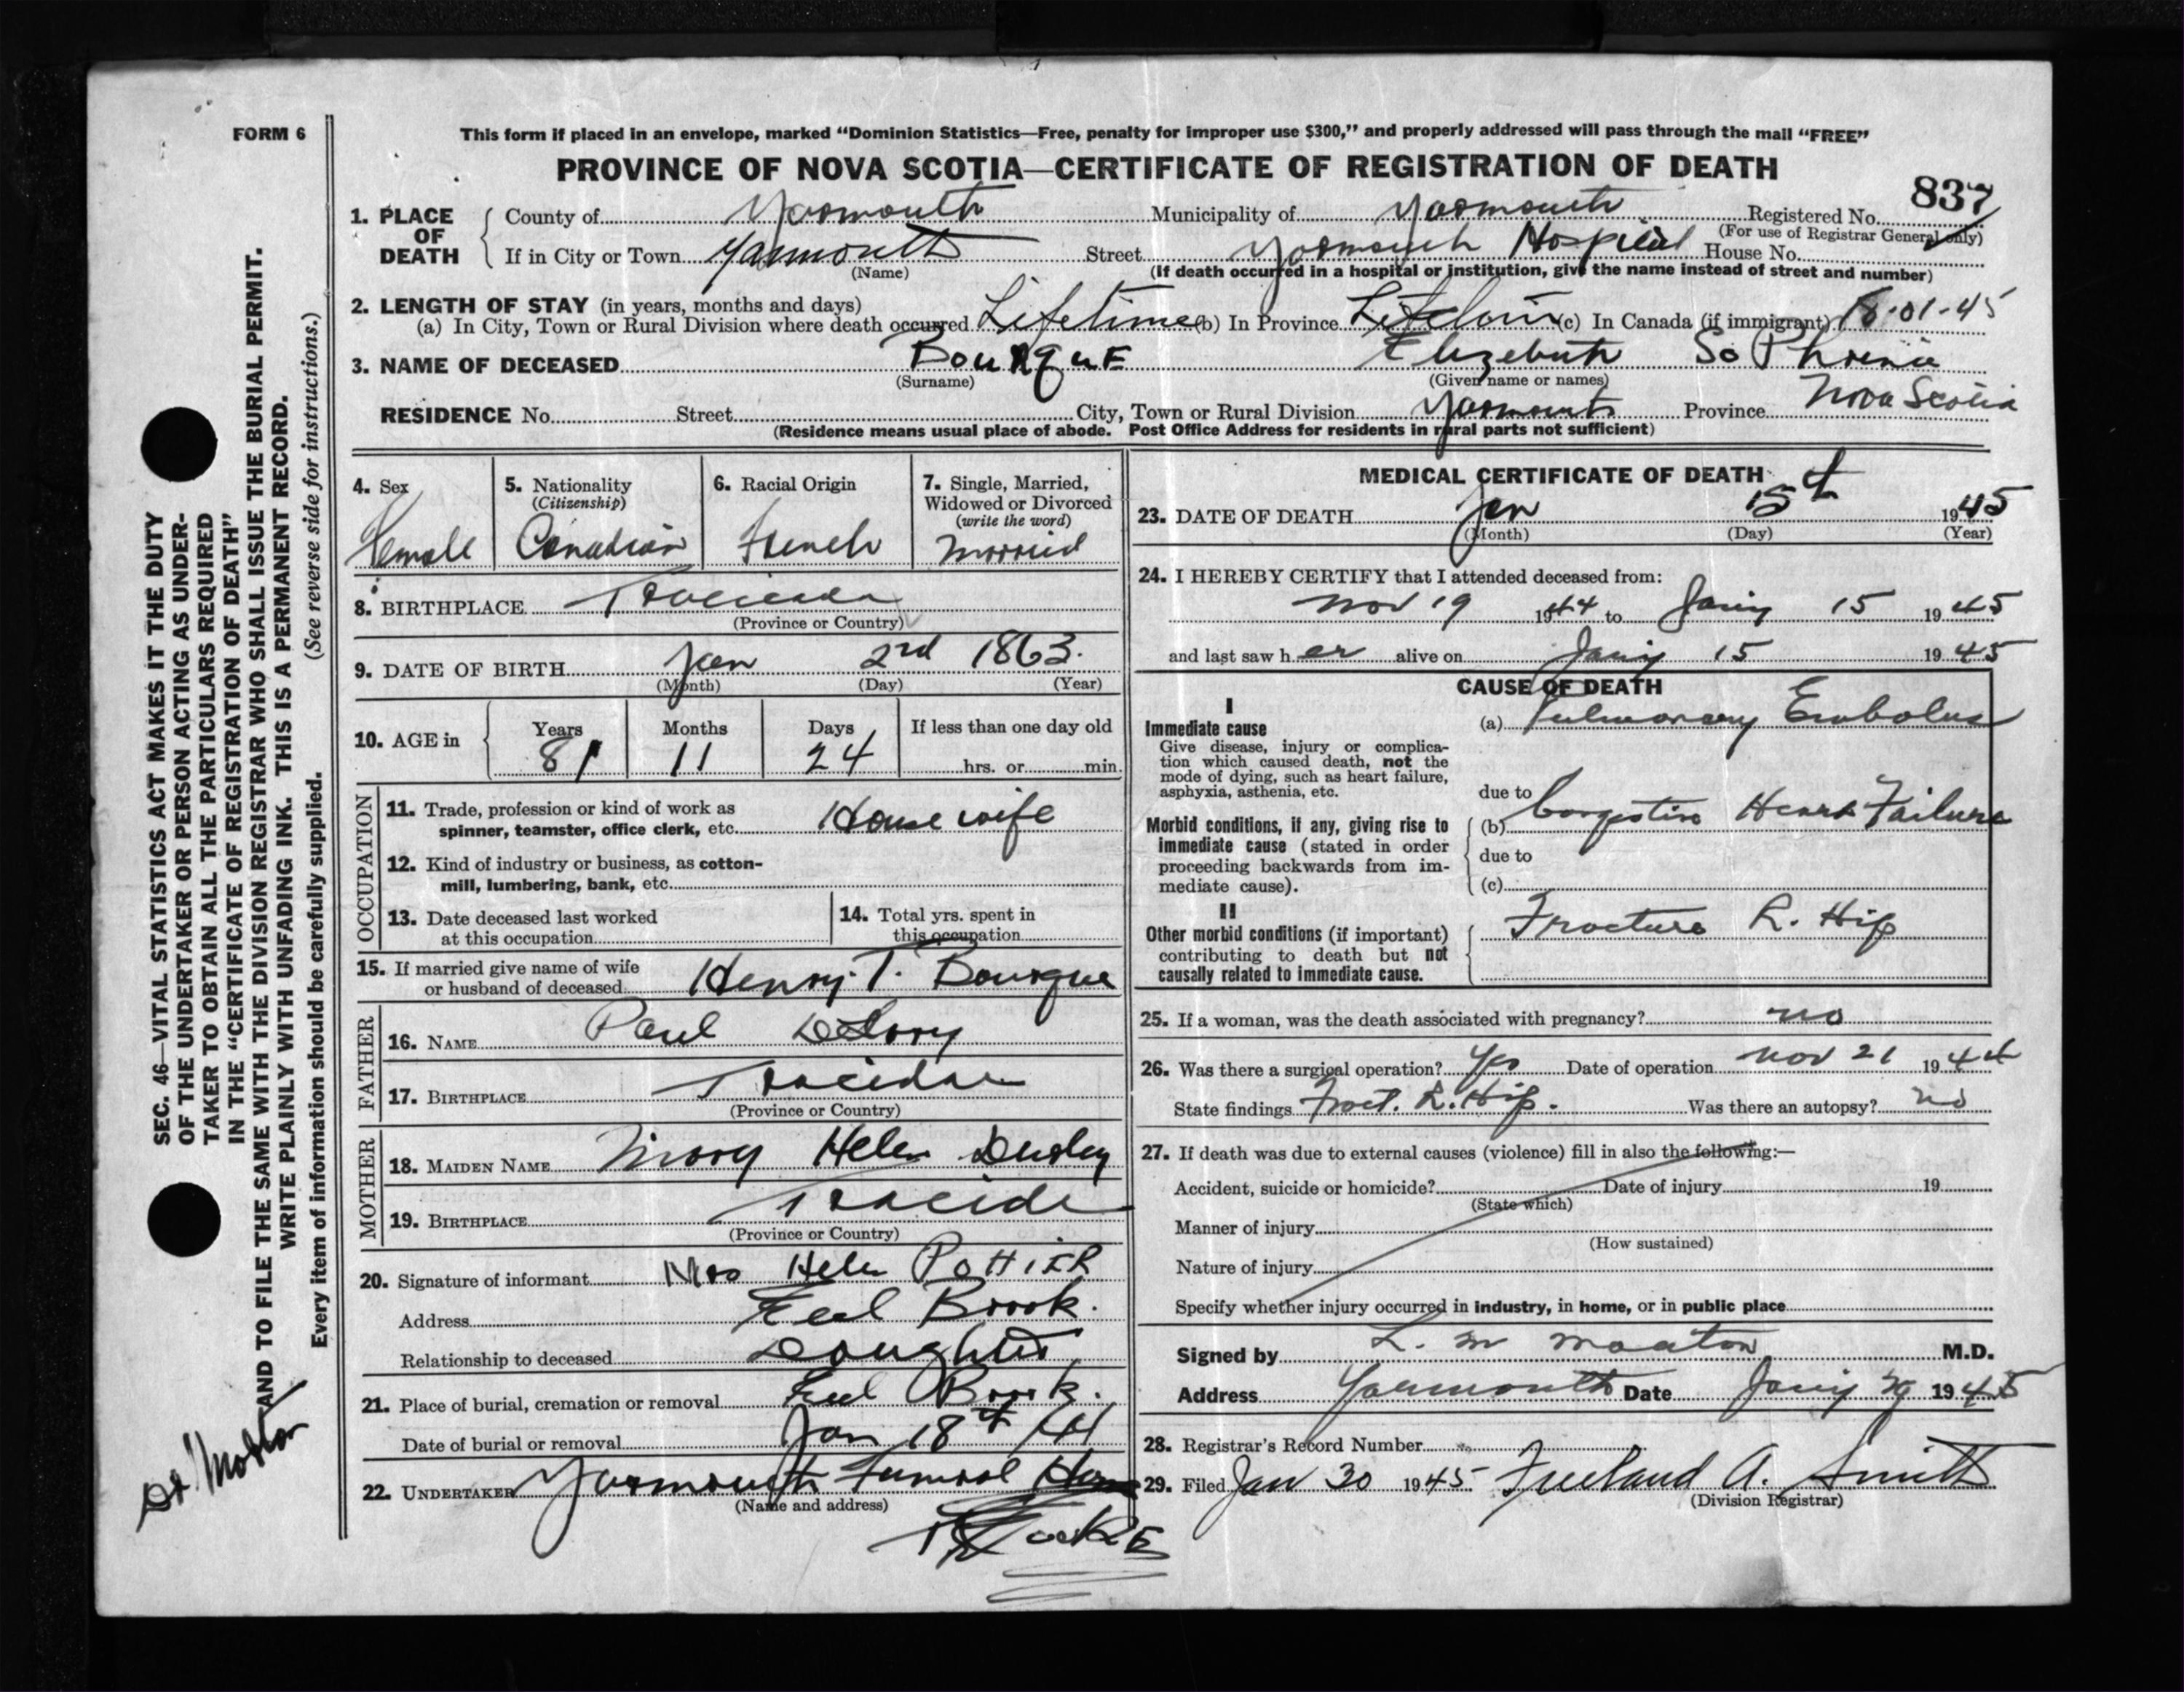 FORM 6
This form if placed in an envelope, marked "Dominion Statistics—Free, penalty for improper use $300," and properly addressed will pass through the mail "FREE"
PROVINCE OF NOVA SCOTIA—CERTIFICATE OF REGISTRATION OF DEATH
837
1. PLACE OF DEATH County of Yarmouth Municipality of Yarmouth Registered No.
(For use of Registrar General only)
If in City or Town Yarmouth Street Yarmouth Hospital House No.
(Name) (If death occurred in a hospital or institution, give the name instead of street and number)
2. LENGTH OF STAY (in years, months and days)
(a) In City, Town or Rural Division where death occurred Lifetime (b) In Province Lifetime (c) In Canada (if immigrant) 18-01-45
3. NAME OF DECEASED BourquE Elizebeth SoPhrenia
(Surname) (Given name or names)
RESIDENCE No. Street City, Town or Rural Division Yarmouth Province Nova Scotia
(Residence means usual place of abode. Post Office Address for residents in rural parts not sufficient)
4. Sex Female
5. Nationality (Citizenship) Canadian
6. Racial Origin French
7. Single, Married, Widowed or Divorced (write the word) Married
8. BIRTHPLACE
(Province or Country)
9. DATE OF BIRTH Jan 2nd 1863.
(Month) (Day) (Year)
10. AGE in Years 81 Months 11 Days 24 If less than one day old hrs. or min.
OCCUPATION
11. Trade, profession or kind of work as spinner, teamster, office clerk, etc. House wife
12. Kind of industry or business, as cotton-mill, lumbering, bank, etc.
13. Date deceased last worked at this occupation
14. Total yrs. spent in this occupation
15. If married give name of wife or husband of deceased Henry. T. Bourque
FATHER
16. NAME Paul DeLory
17. BIRTHPLACE
(Province or Country)
MOTHER
18. MAIDEN NAME Mary Helen
19. BIRTHPLACE
(Province or Country)
20. Signature of informant Mrs Helen PottiER
Address Eeel Brook.
Relationship to deceased Daughter
21. Place of burial, cremation or removal Eel Brook.
Date of burial or removal Jan 18th /44
22. UNDERTAKER Yarmouth Funeral Home
(Name and address)
MEDICAL CERTIFICATE OF DEATH
23. DATE OF DEATH Jan 15th 1945
(Month) (Day) (Year)
24. I HEREBY CERTIFY that I attended deceased from:
Nov 19 1944 to Jan'y 15 1945
and last saw her alive on Jan'y 15 1945
CAUSE OF DEATH
I
Immediate cause
Give disease, injury or complication which caused death, not the mode of dying, such as heart failure, asphyxia, asthenia, etc.
(a) Pulmonary Embolus
due to
Morbid conditions, if any, giving rise to immediate cause (stated in order proceeding backwards from immediate cause).
(b) Congestive Heart Failure
due to
(c)
II
Other morbid conditions (if important) contributing to death but not causally related to immediate cause.
Fracture R. Hip
25. If a woman, was the death associated with pregnancy? no
26. Was there a surgical operation? Yes Date of operation Nov 21 1944
State findings Fract. R. Hip. Was there an autopsy? no
27. If death was due to external causes (violence) fill in also the following:—
Accident, suicide or homicide? Date of injury 19
(State which)
Manner of injury
(How sustained)
Nature of injury
Specify whether injury occurred in industry, in home, or in public place
Signed by L. M Morton M.D.
Address Yarmouth Date Jan'y 1945
28. Registrar's Record Number
29. Filed Jan 30 1945 Freeland A. Smith
(Division Registrar)
SEC. 46—VITAL STATISTICS ACT MAKES IT THE DUTY
OF THE UNDERTAKER OR PERSON ACTING AS UNDER-
TAKER TO OBTAIN ALL THE PARTICULARS REQUIRED
IN THE "CERTIFICATE OF REGISTRATION OF DEATH"
AND TO FILE THE SAME WITH THE DIVISION REGISTRAR WHO SHALL ISSUE THE BURIAL PERMIT.
WRITE PLAINLY WITH UNFADING INK. THIS IS A PERMANENT RECORD.
Every item of information should be carefully supplied. (See reverse side for instructions.)
Dr. Morton